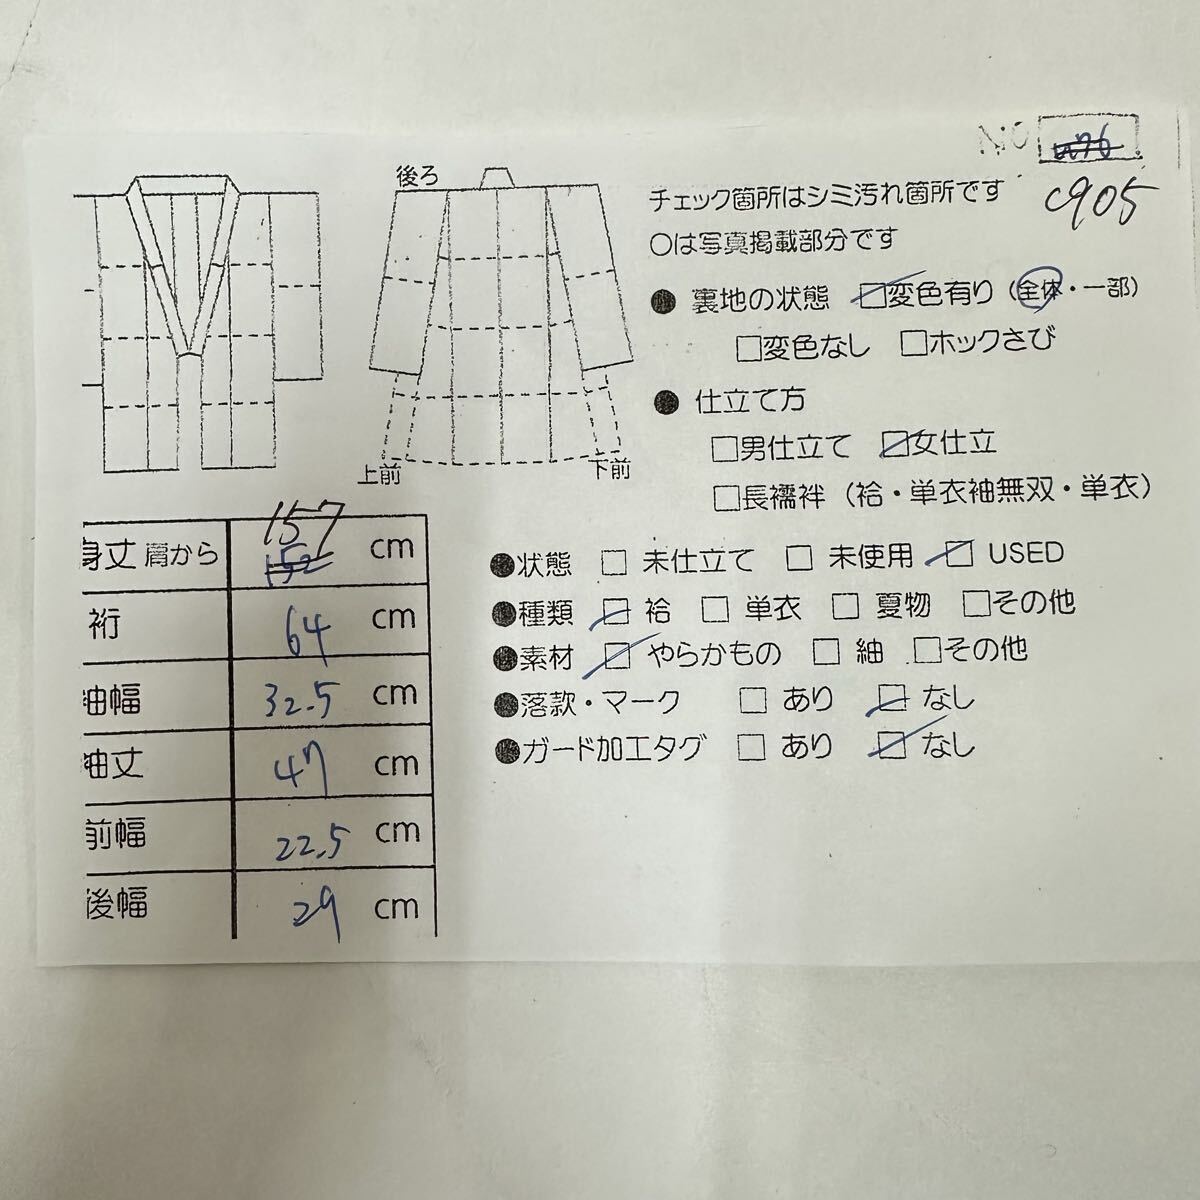 NO
c905
後ろ
上前
下前
チェック箇所はシミ汚れ箇所です
○は写真掲載部分です
● 裏地の状態 ☑変色有り (全体・一部)
□変色なし □ホックさび
● 仕立て方
□男仕立て ☑女仕立
□長襦袢 (袷・単衣袖無双・単衣)
身丈 肩から 157 cm
152
裄 64 cm
袖幅 32.5 cm
袖丈 47 cm
前幅 22.5 cm
後幅 29 cm
●状態 □ 未仕立て □ 未使用 ☑ USED
●種類 ☑ 袷 □ 単衣 □ 夏物 □その他
●素材 ☑ やらかもの □ 紬 □その他
●落款・マーク □ あり ☑ なし
●ガード加工タグ □ あり ☑ なし